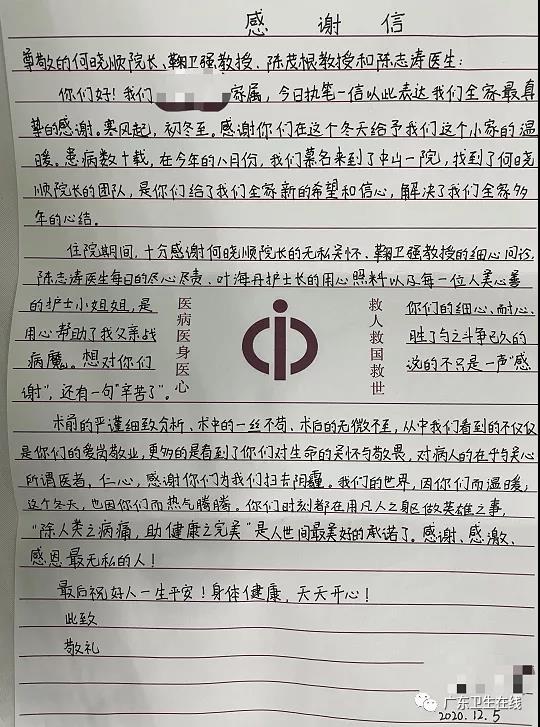 感谢信
尊敬的何晓顺院长、鞠卫强教授、陈茂根教授和陈志涛医生：
你们好！我们家属，今日执笔一信以此表达我们全家最真
挚的感谢。寒风起，初冬至。感谢你们在这个冬天给予我们这个小家的温
暖。患病数十载，在今年的八月份，我们慕名来到了中山一院，找到了何晓
顺院长的团队，是你们给了我们全家新的希望和信心，解决了我们全家多
年的心结。
住院期间，十分感谢何晓顺院长的无私关怀、鞠卫强教授的细心问诊，
陈志涛医生每日的尽心尽责、叶海丹护士长的用心照料以及每一位人美心善
的护士小姐姐，是你们的细心、耐心、
用心帮助了我父亲战胜了与之斗争已久的
病魔。想对你们说的不只是一声“感
谢”，还有一句“辛苦了”。
医病医身医心
救人救国救世
术前的严谨细致分析、术中的一丝不苟、术后的无微不至，从中我们看到的不仅仅
是你们的爱岗敬业，更多的是看到了你们对生命的关怀与敬畏，对病人的在乎与关心
所谓医者，仁心，感谢你们为我们扫去阴霾。我们的世界，因你们而温暖，
这个冬天，也因你们而热气腾腾。你们时刻都在用凡人之躯做英雄之事，
“除人类之病痛，助健康之完美”是人世间最美好的承诺了。感谢、感激、
感恩最无私的人！
最后祝好人一生平安！身体健康，天天开心！
此致
敬礼
广东卫生在线
2020.12.5